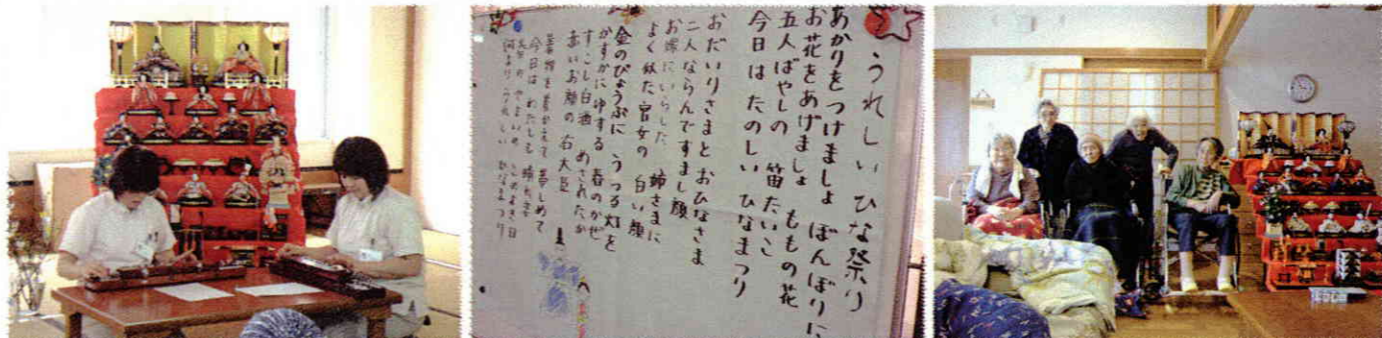 うれしい ひな祭り
あかりをつけましょ ぼんぼりに
お花をあげましょ ももの花
五人ばやしの 笛たいこ
今日はたのしい ひなまつり
おだいりさまと おひなさま
二人ならんですまし顔
お嫁にいらした 姉さまに
よく似た官女の 白い顔
金のびょうぶに うつる灯を
かすかにゆする 春のかぜ
すこし白酒 めされたか
赤いお顔の右大臣
着物を着かえて 帯しめて
今日はわたしも 晴れ姿
春のやよいの このよき日
何よりうれしい ひなまつり